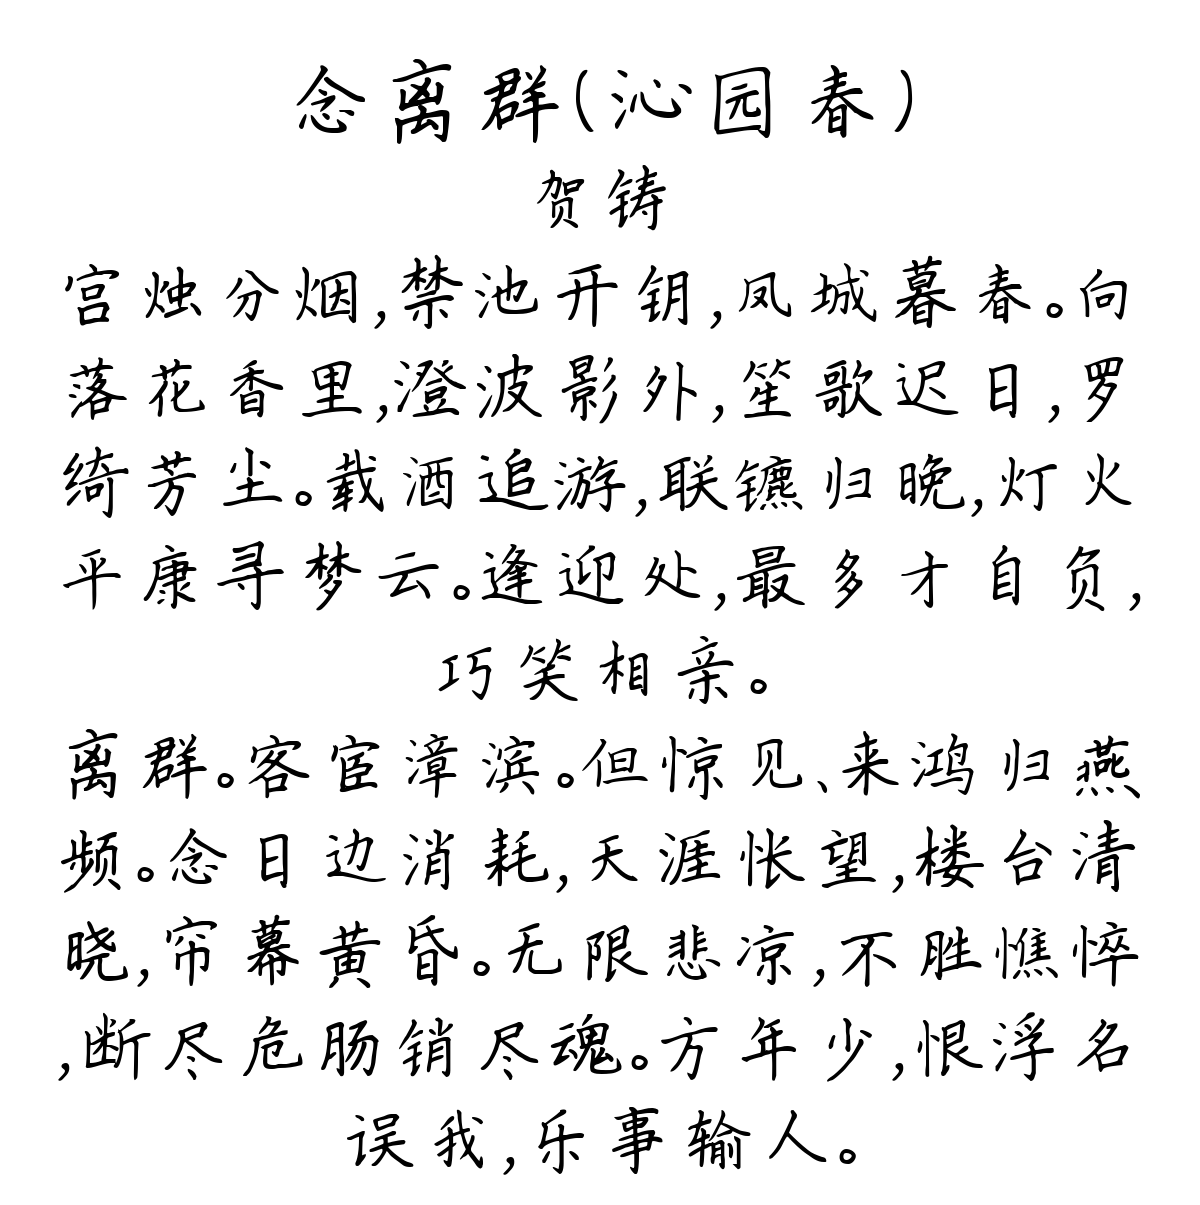 念离群(沁园春)
贺铸
宫烛分烟,禁池开钥,凤城暮春。向
落花香里,澄波影外,笙歌迟日,罗
绮芳尘。载酒追游,联镳归晚,灯火
平康寻梦云。逢迎处,最多才自负,
巧笑相亲。
离群。客宦漳滨。但惊见、来鸿归燕
频。念日边消耗,天涯怅望,楼台清
晓,帘幕黄昏。无限悲凉,不胜憔悴
,断尽危肠销尽魂。方年少,恨浮名
误我,乐事输人。